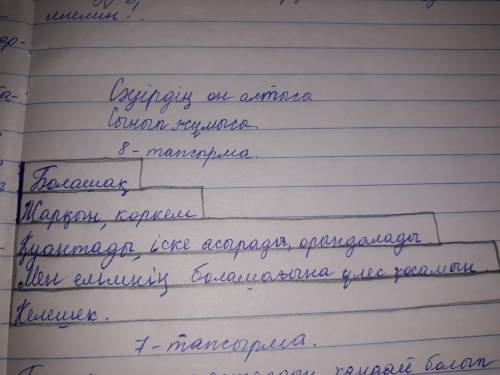 Сәуірдің он алтысы
Сынып жұмысы
8-тапсырма.
Болашақ
Жарқын, көркем
Қуантады, іске асырады, орындалады.
Мен елімнің болашағына үлес қосамын.
Келешек.
7-тапсырма.
қандай болып